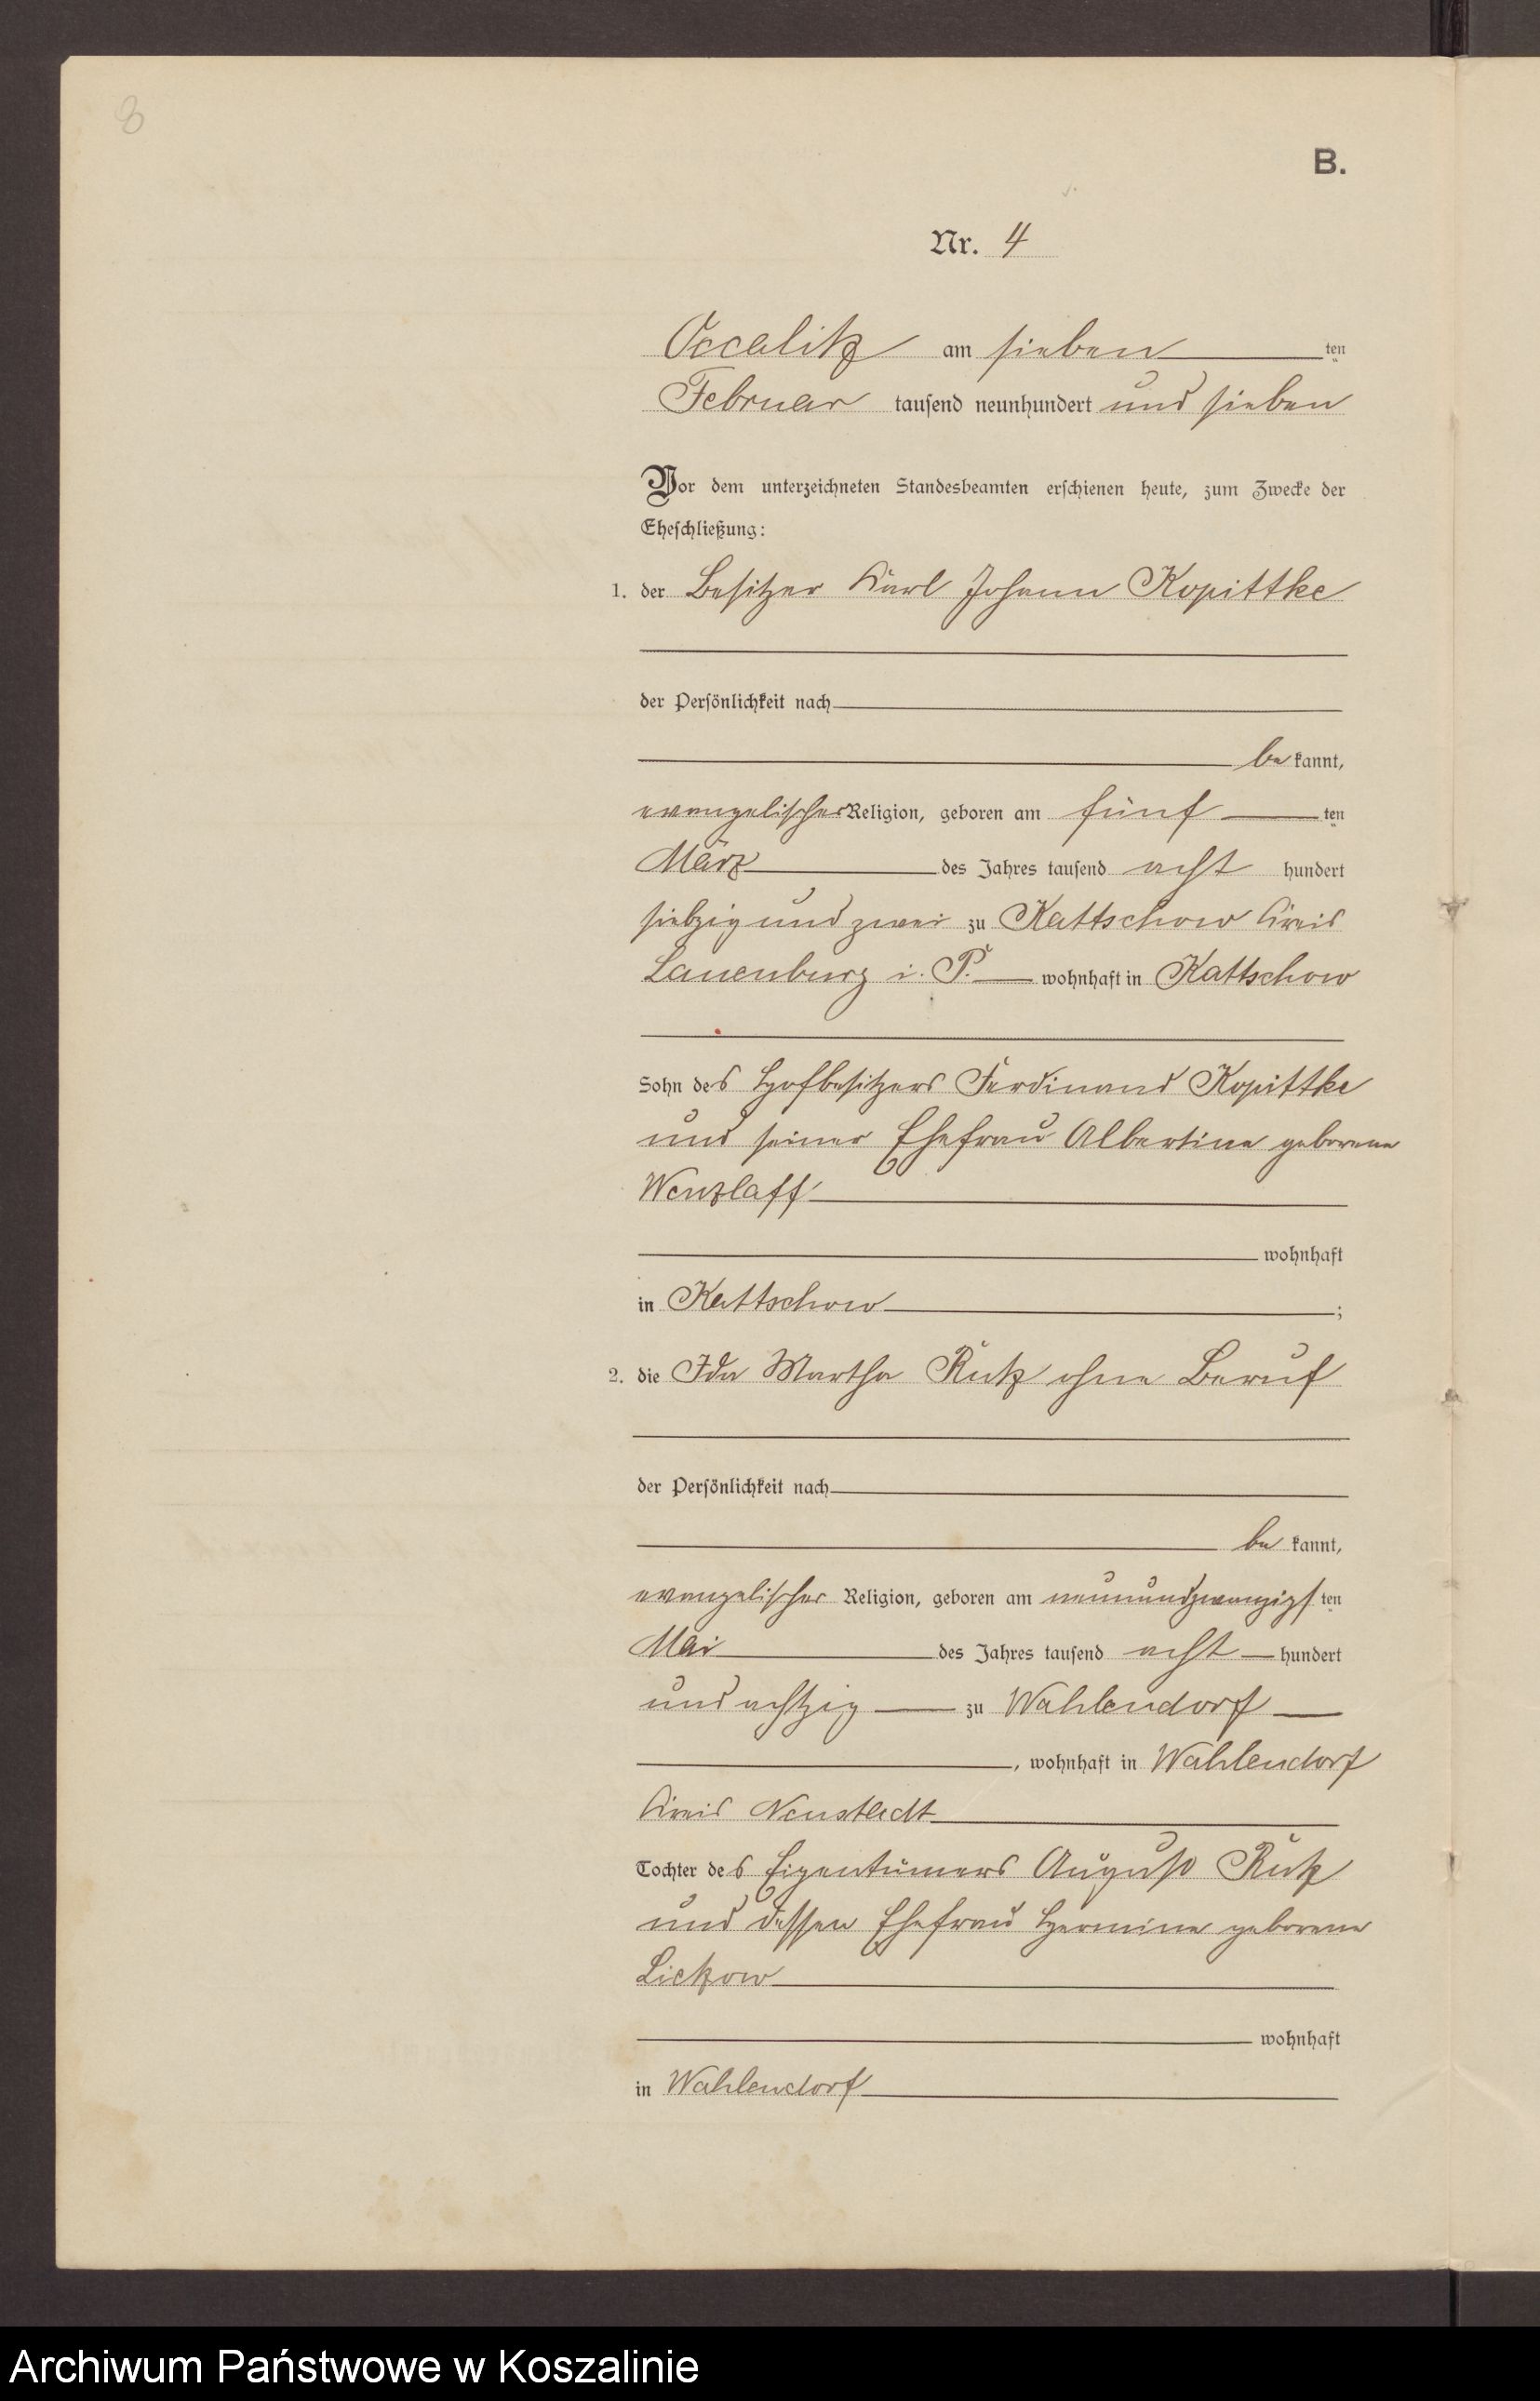 8
B.
Nr. 4
Occalitz am sieben ten
Februar tausend neunhundert und sieben
Vor dem unterzeichneten Standesbeamten erschienen heute, zum Zwecke der
Eheschließung:
1. der Besitzer Karl Johann Kopittke
der Persönlichkeit nach
be kannt,
evangelischer Religion, geboren am fünf ten
März des Jahres tausend acht hundert
siebzig und zwei zu Kattschow Kreis
Lauenburg i. P. wohnhaft in Kattschow
Sohn des Hofbesitzers Ferdinand Kopittke
und seiner Ehefrau Albertine geborene
Wenzlaff
wohnhaft
in Kattschow ;
2. die Ida Martha Rutz ohne Beruf
der Persönlichkeit nach
be kannt,
evangelischer Religion, geboren am neunundzwanzigs ten
Mai des Jahres tausend acht hundert
und achtzig zu Wahlendorf
, wohnhaft in Wahlendorf
Kreis Neustadt
Tochter des Eigentümers August Rutz
und dessen Ehefrau Hermine geborene
Lietzow
wohnhaft
in Wahlendorf
Archiwum Państwowe w Koszalinie